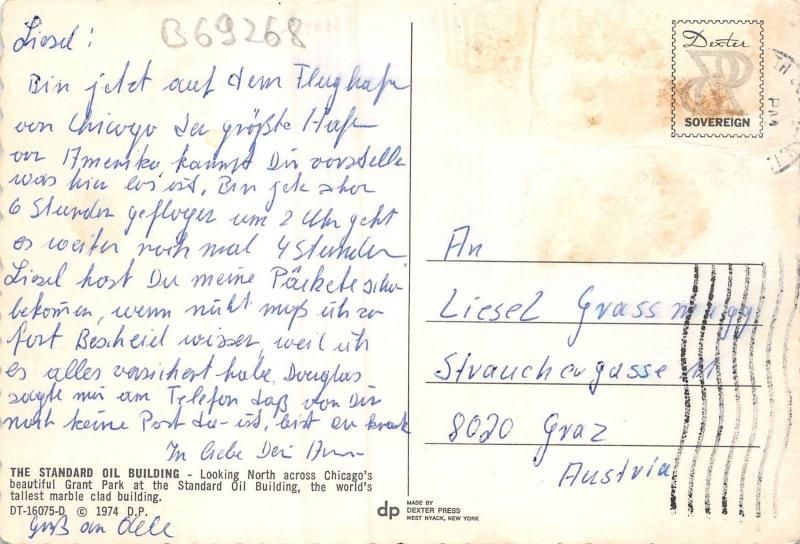 B69268
Liesel!
Bin jetzt auf dem Flughafn
von Chicago der größte Hafn
von Amerika, kannst Dir vorstelln
was hier los ist. Bin jetz schon
6 Stunden geflogen um 2 Uhr geht
es weiter noch mal 4 Stunden
Liesel hast Du meine Päckete schon
bekommen, wenn nicht muß ich so
fort Bescheid wissen, weil ich
es alles versichert habe. Douglas
sagte mir am Telefon daß von Dir
noch keine Post da ist, bist du krank
In Liebe Dein
Gruß an Alle
THE STANDARD OIL BUILDING - Looking North across Chicago's
beautiful Grant Park at the Standard Oil Building, the world's
tallest marble clad building.
DT-16075-D © 1974 D.P.
dp
MADE BY
DEXTER PRESS
WEST NYACK, NEW YORK
Dexter
SOVEREIGN
PM
An
Liesel Grassmugg
Strauchergasse
8020 Graz
Austria